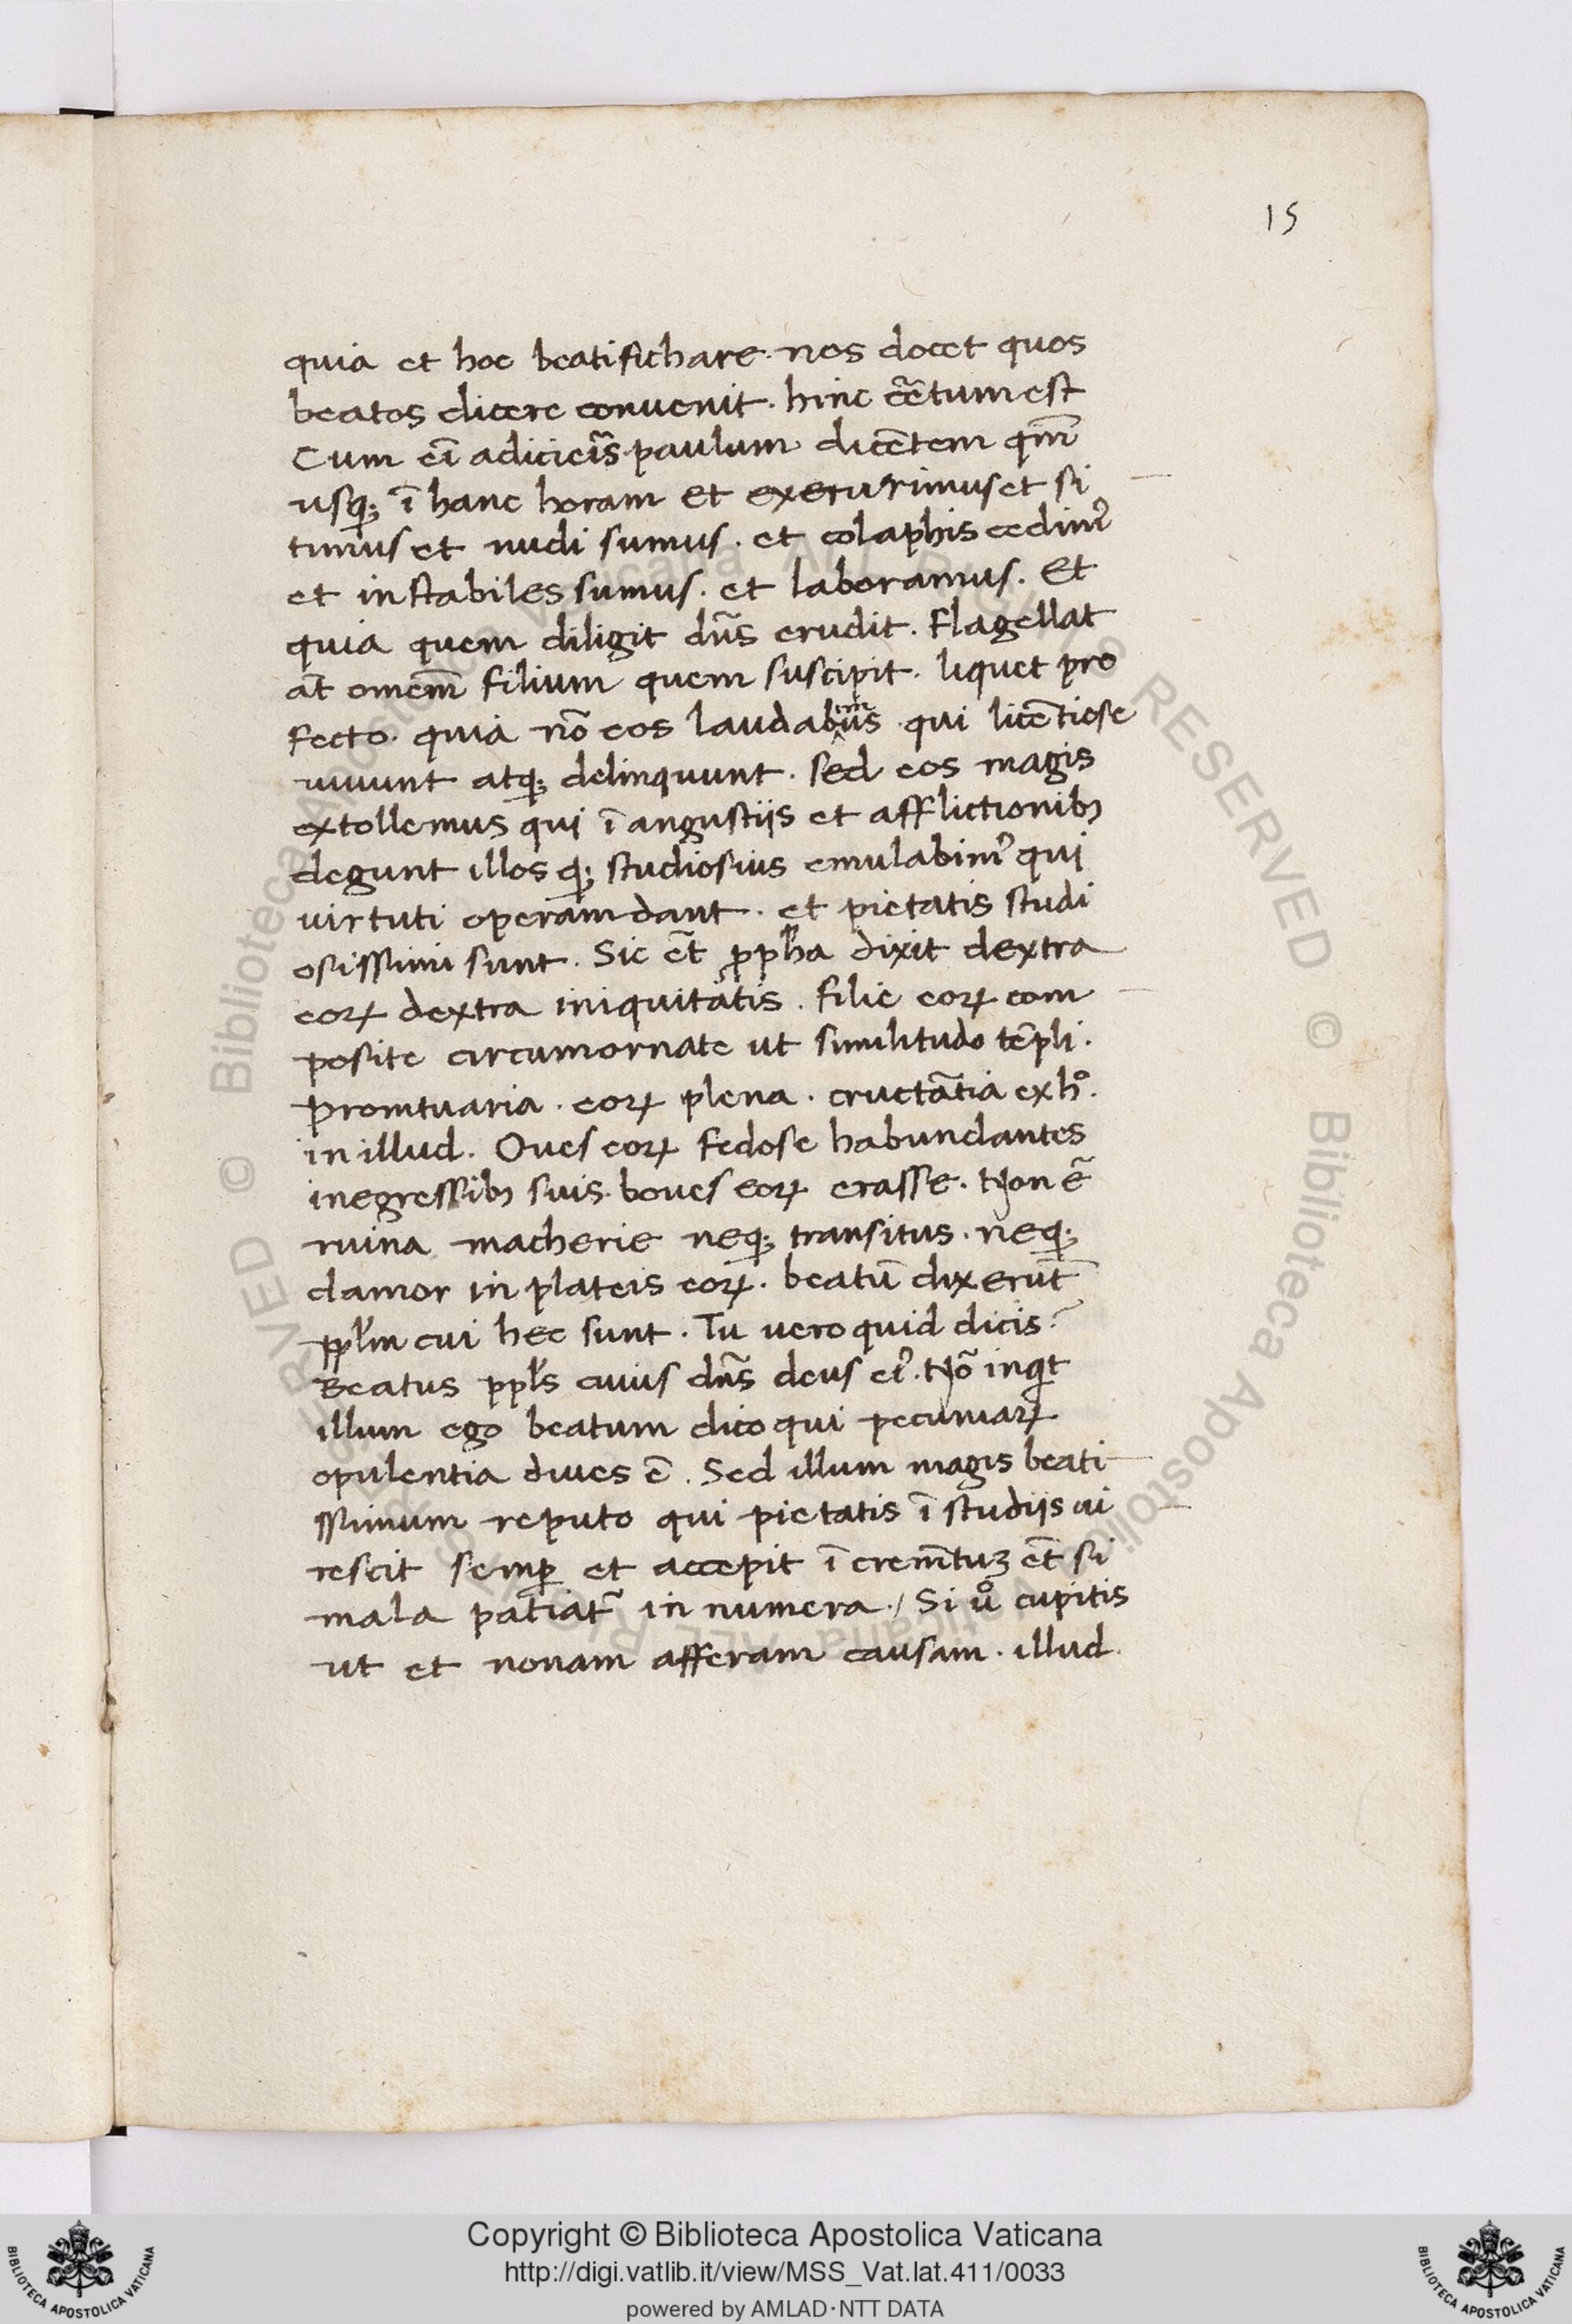 15
quia et hoc beatifichare. nos docet quos
beatos dicere convenit. hinc c̃etum est
Cum eĩ adicieĩs paulum dicẽtem qm̃
usq; ĩ hanc horam et exerurimus et si
timus et nudi sumus. et colaphis cedimr̃
et instabiles sumus. et laboramus. Et
quia quem diligit dñs erudit. Flagellat
at̃ omem̃ filium quem suscipit. liquet pro
fecto. quia nõ eos laudabimus qui licẽtiose
vivunt atq; delinquunt. sed eos magis
extollemus qui ĩ angustiis et afflictionibꝫ
degunt illosq; studiosius emulabimr̃ qui
virtuti operam dant. et pietatis studi
osissimi sunt. Sic et̃ ꝓpħa dixit dextra
eoꝝ dextra iniquitatis. filie eoꝝ com
posite circumornate ut similitudo tẽpli.
Promtuaria. eoꝝ plena. eructãtia ex h°.
in illud. Oves eoꝝ fedose habundantes
in egressibꝫ suis. boves eoꝝ crasse. Non ẽ
ruina macherie neq; transitus. neq;
clamor in plateis eoꝝ. beatũ dixerut̃
ppl̃m cui hec sunt. Tu vero quid dicis?
Beatus ppl̃s cuius dñs deus ei᾿. Nõ inqt
illum ego beatum dico qui pecuniaꝝ
opulentia dives ẽ. Sed illum magis beati
ssimum reputo qui pietatis ĩ studiis vi
rescit semꝑ et accepit ĩ crem̃tuꝫ et̃ si
mala patiat̃ innumera./ Si u° cupitis
ut et nonam afferam causam. illud
Copyright © Biblioteca Apostolica Vaticana
http://digi.vatlib.it/view/MSS_Vat.lat.411/0033
powered by AMLAD·NTT DATA